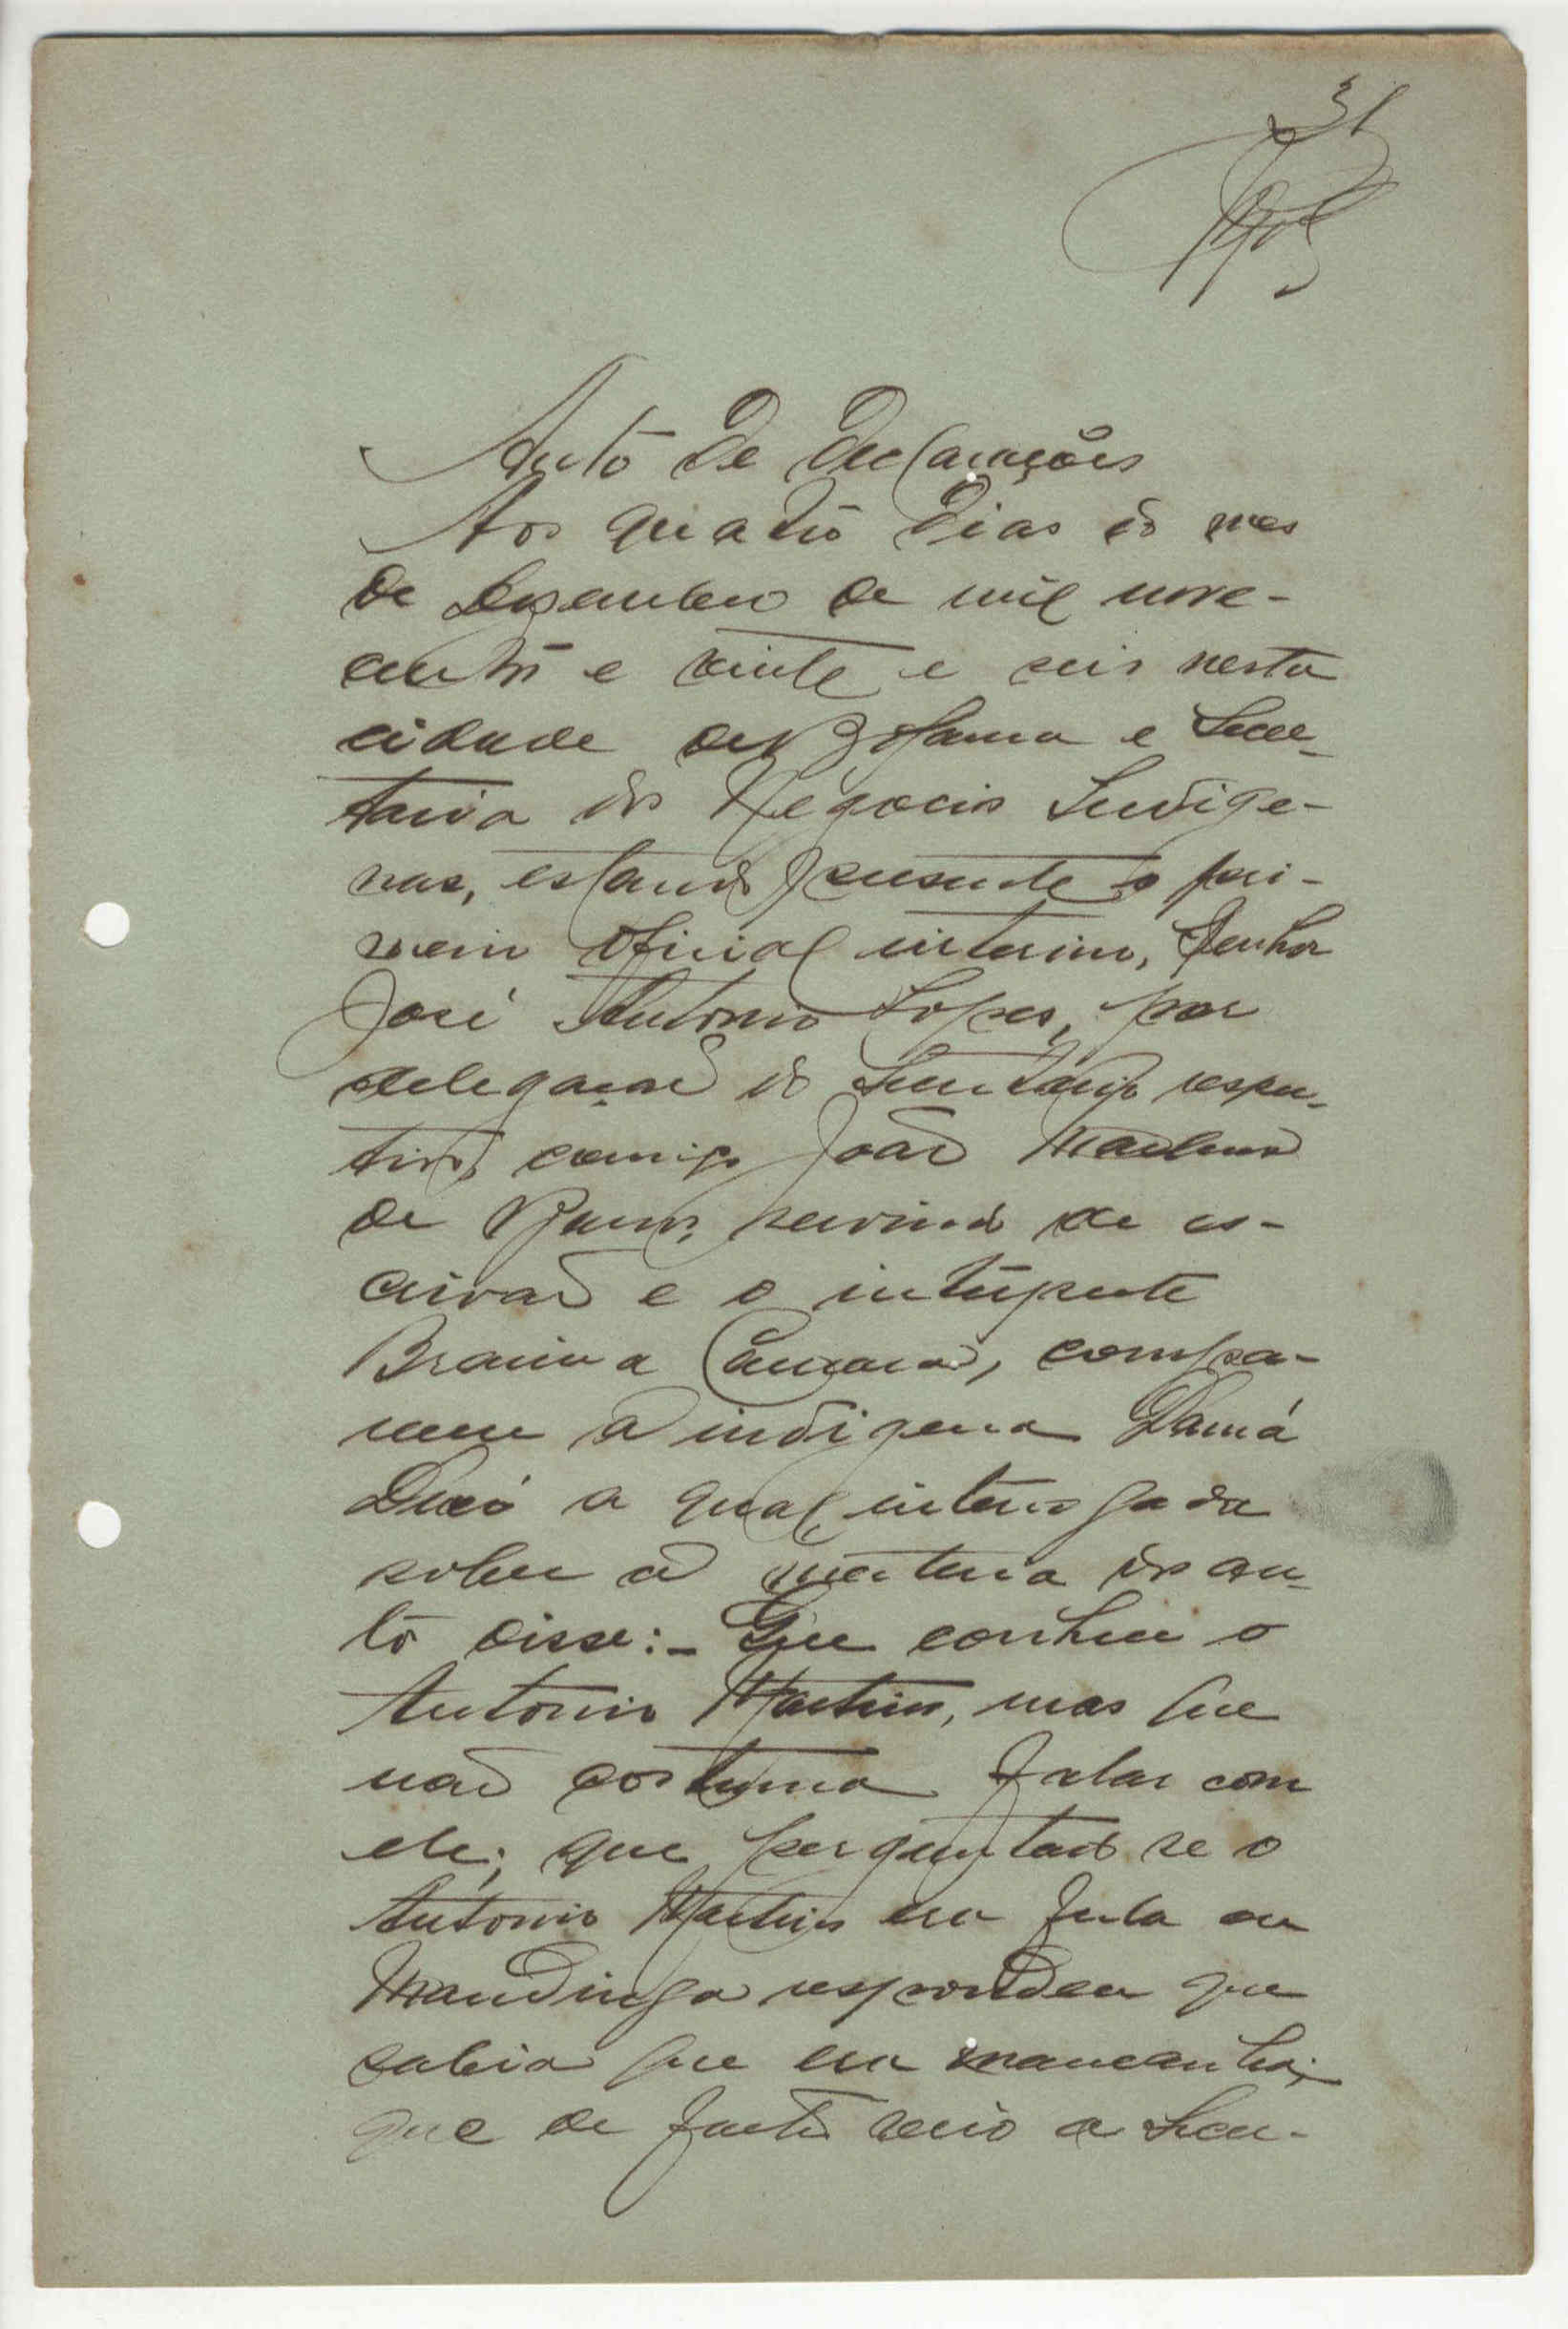 31
Auto de Declarações
Aos quatro dias do mes
de Dezembro de mil nove-
centos e vinte e seis nesta
cidade de Bolama e Secre-
taria dos Negocios Indige-
nas, estando presente o pri-
meiro oficial interino, Senhor
José Antonio Lopes, por
delegação do Secretario respe-
tivo, comigo João
de Barros, servindo de es-
crivão e o interprete
Braima Camará, compa-
receu a indigena Damá
a qual interrogada
sobre a materia dos au-
to disse:- Que conhece o
Antonio Martins, mas que
não costuma falar com
ele; que perguntado se o
Antonio Martins era fula ou
Mandinga respondeu que
sabia que era mancanha;
que de facto veio a Secre-